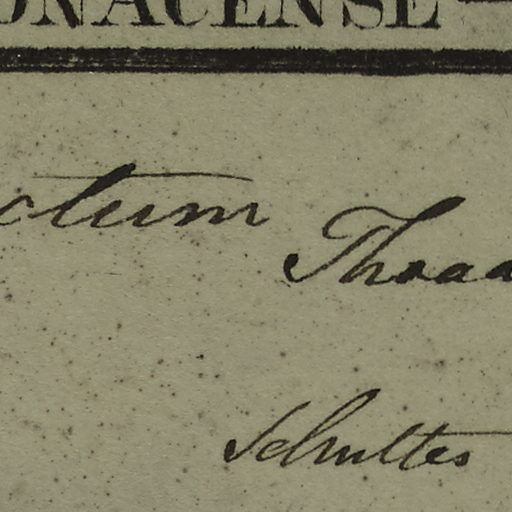 ONACENSE
ctum Thraa
Schultes